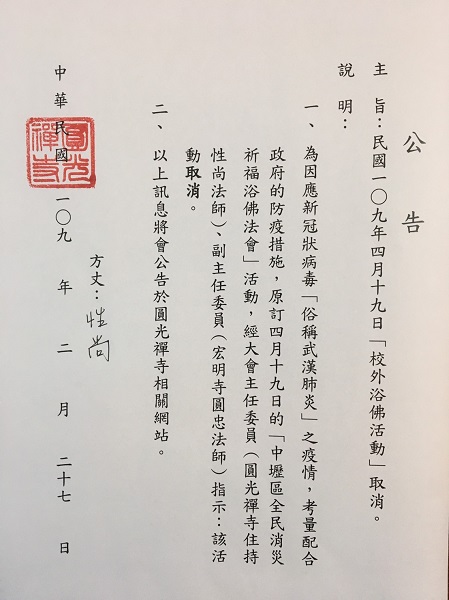 公告
主 旨：民國一〇九年四月十九日「校外浴佛活動」取消。
說 明：
一、為因應新冠狀病毒「俗稱武漢肺炎」之疫情，考量配合
政府的防疫措施，原訂四月十九日的「中壢區全民消災
祈福浴佛法會」活動，經大會主任委員（圓光禪寺住持
性尚法師）、副主任委員（宏明寺圓忠法師）指示：該活
動取消。
二、以上訊息將會公告於圓光禪寺相關網站。
方丈：性尚
中華民國一〇九年二月二十七日
圓光
禪寺